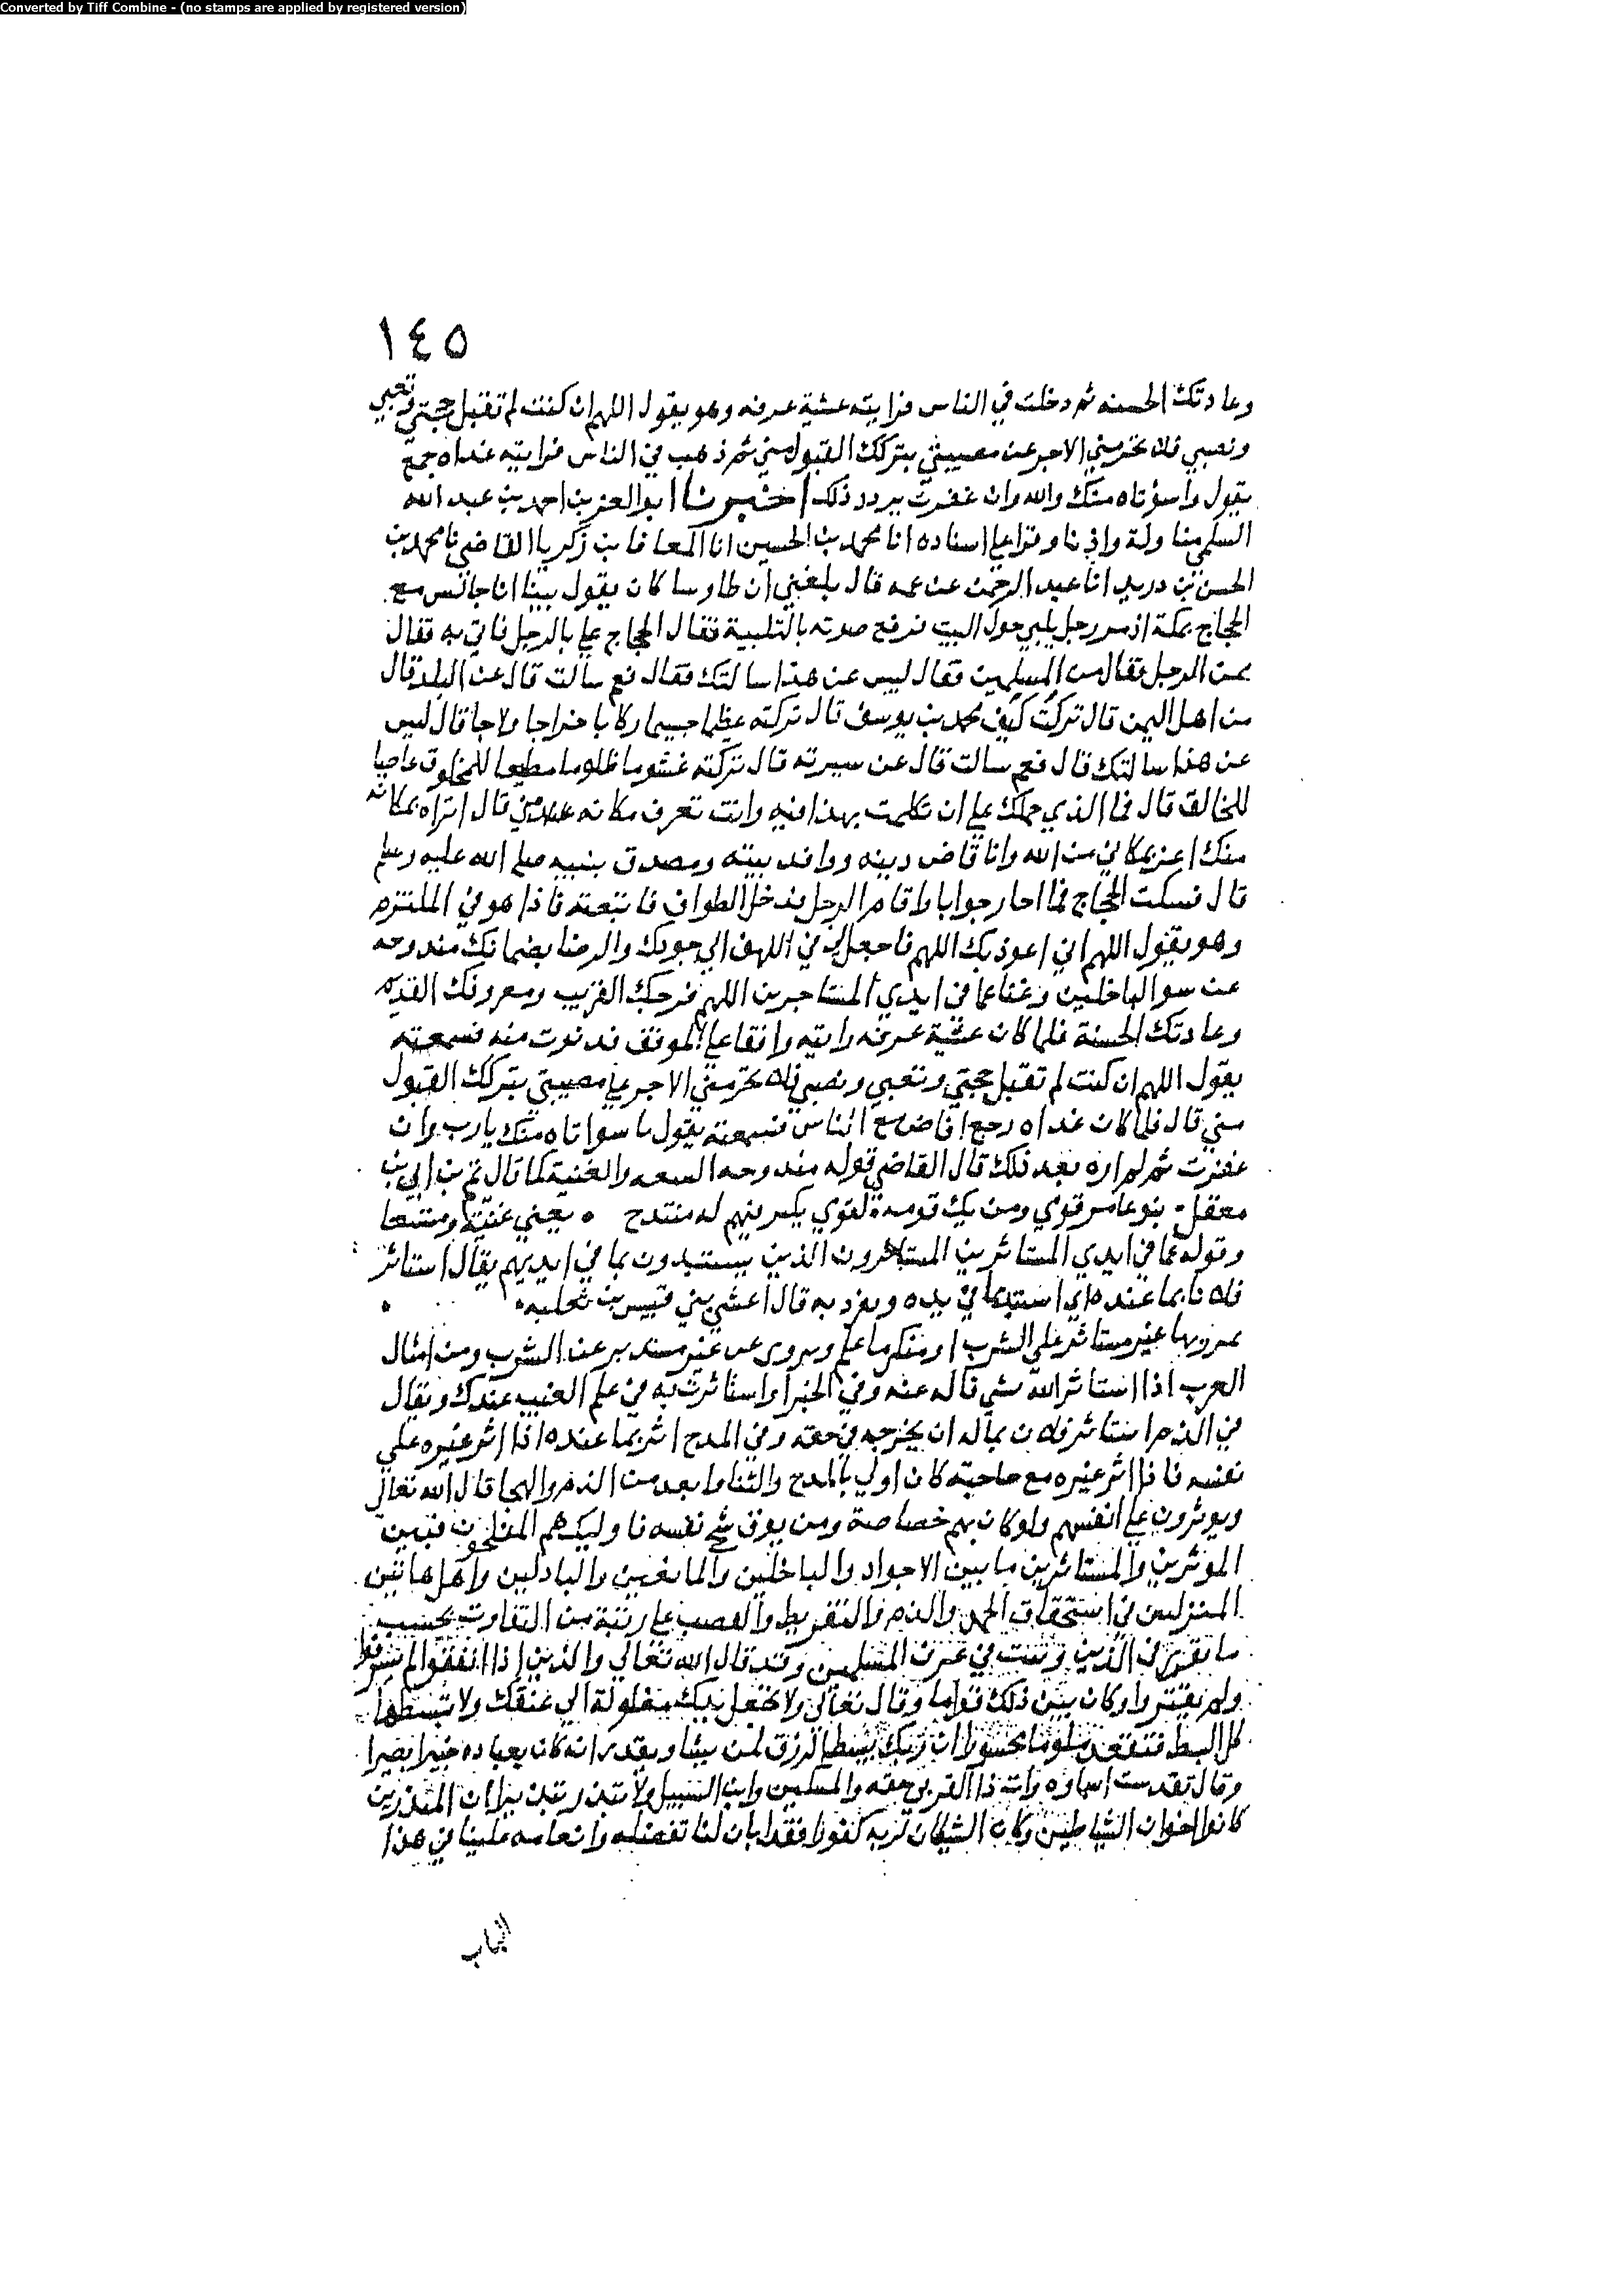 Converted by Tiff Combine - (no stamps are applied by registered version)
١٤٥
وعادتك الحسنه ثم دخلت في الناس فرايته عشية عرفه وهو يقول اللهم ان كنت لم تقبل حجتي وتعبي
ونصبي فلا تحرمني الاجر عن مصيبتي بتركك القبول مني ثم ذهب في الناس فرايته غداه جمع
يقول واسؤتاه منك والله وان غفرت يردد ذلك اخبرنا ابو العز بن احمد بن عبد الله
السلمي مناولة واذنا وقرا علي اسناده انا محمد بن الحسين انا المعافا بن زكريا القاضي نا محمد بن
الحسن بن دريد انا عبد الرحمن عن عمه قال بلغني ان طاوسا كان يقول بينا انا جالس مع
الحجاج بمكة اذ مر رجل يلبي حول البيت فرفع صوته بالتلبية فقال الحجاج علي بالرجل فاتي به فقال
ممن الرجل فقال من المسلمين فقال ليس عن هذا سالتك فقال فعم سالت قال عن البلد قال
من اهل اليمن قال تركت كيف محمد بن يوسف قال تركته عظيما جسيما ركابا خراجا ولاجا قال ليس
عن هذا سالتك قال فعم سالت قال عن سيرته قال تركته غشوما ظلوما مطيعا للمخلوق عاصيا
للخالق قال فما الذي حملك علي ان تكلمت بهذا فيه وانت تعرف مكانه مني قال اتراه بمكانه
منك اعز بمكاني من الله وانا قاض دينه ووافد بيته ومصدق بنبيه صلي الله عليه وسلم
قال فسكت الحجاج فما احار جوابا وقام الرجل فدخل الطواف فاتبعته فاذا هو في الملتزم
وهو يقول اللهم اني اعوذ بك اللهم فاجعل لي في اللهف الي جودك والرضا بضمانك مندوحه
عن سوال الباخلين وغنا عما في ايدي المستاثرين اللهم فرجك القريب ومعروفك القديم
وعادتك الحسنة فلما كان عشية عرفه رايته واقفا علي الموقف فدنوت منه فسمعته
يقول اللهم ان كنت لم تقبل حجتي وتعبي ونصبي فلا تحرمني الاجر علي مصيبتي بتركك القبول
مني قال فلما كان غداه رجع افاض مع الناس فسمعته يقول يا سواتاه منك يارب وان
غفرت ثم لم اره بعد ذلك قال القاضي قوله مندوحه السعه والغنية كما قال تم بن ابي بن
معقل • بنو عامر قومي ومن يك قومه لقومي يكن فيهم له منتدح ه يعني غنية ومتسعا
وقوله عما في ايدي المستاثرين المستاثرون الذين يستبدون بما في ايديهم يقال استاثر
فلانا بما عنده اي استبد بما في يده وبعد به قال اعشي بني قيس بن ثعلبه•
تمززتها غير مستاثر علي الشرب او منكر ما علم ويروي عن غير مستدبر عن الشرب ومن امثال
العرب اذا استاثر الله بشي فاله عنه وفي الخبر او استاثرت به في علم الغيب عندك ويقال
في الذم استاثر فلان بماله ان يخرجه في حقه وفي المدح اثر بما عنده اذا اثر غيره علي
نفسه فاذا اثر غيره مع صاحبته كان اولي بالمدح والثنا وابعد من الذم والهجا قال الله تعالي
ويوثرون علي انفسهم ولو كان بهم خصاصة ومن يوق شح نفسه فاوليك هم المفلحون فبين
الموثرين والمستاثرين ما بين الاجواد والباخلين والمانعين والباذلين واهل هاتين
المنزلتين في استحقاق الحمد والذم والتقريظ والقصب علي رتبة من التفاوت بحسب
ما تقرر في الدين وثبت في عرف المسلمين وقد قال الله تعالي والذين اذا انفقوا لم يسرفوا
ولم يقتروا وكان بين ذلك قواما وقال تعالي ولا تجعل يدك مغلولة الي عنقك ولا تبسطها
كل البسط فتقعد ملوما محسورا ان ربك يبسط الرزق لمن يشا ويقدر انه كان بعباده خبيرا بصيرا
وقال تقدست اسماوه وات ذا القربي حقه والمسكين وابن السبيل ولا تبذر تبذيرا ان المبذرين
كانوا اخوان الشياطين وكان الشيطان لربه كفورا فقد ابان لنا تفضله وانعامه علينا في هذا
الباب